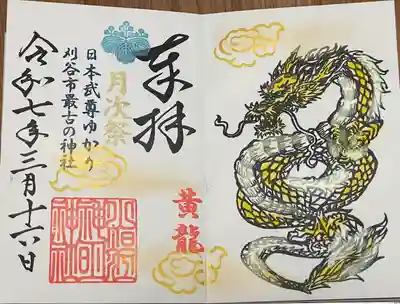 奉拝
月次祭
黄龍
日本武尊ゆかり
刈谷市最古の神社
令和七年三月十六日